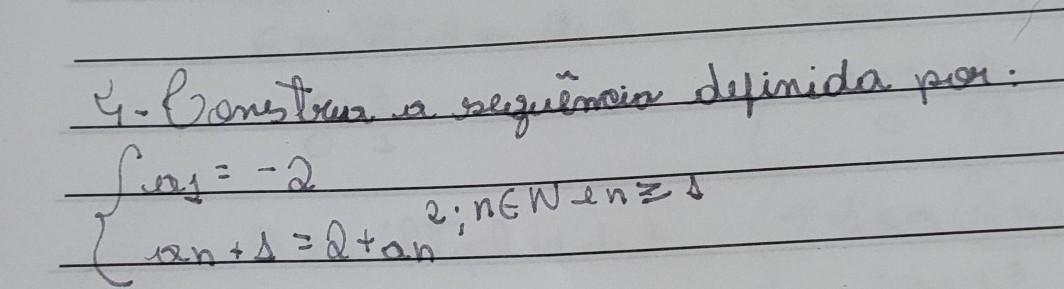 4- Construa a sequência definida por:
{ a1 = -2
an + 1 = 2 + an²; n ∈ N e n ≥ 1